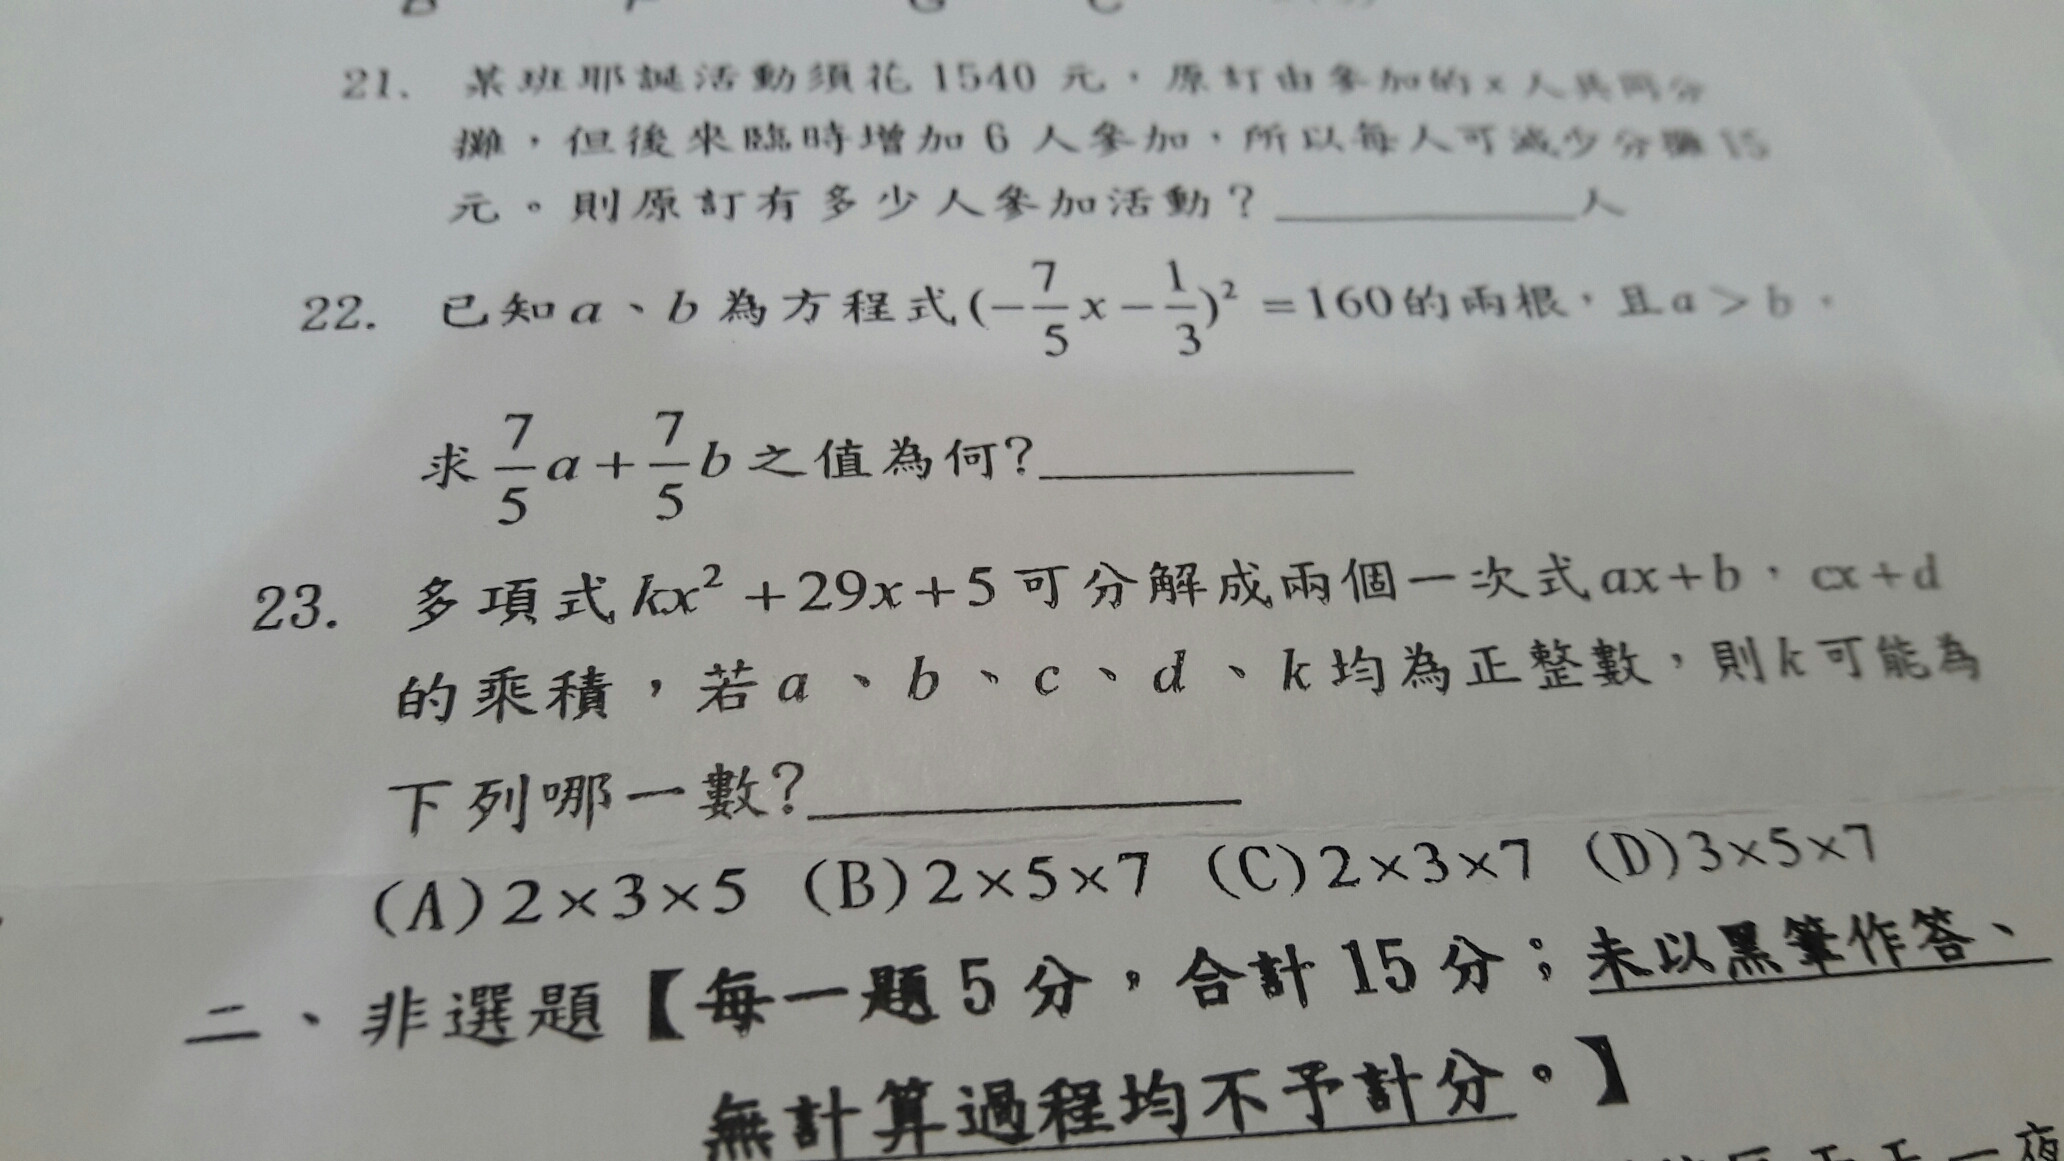 21. 某班耶誕活動須花 1540 元，原訂由參加的 x 人共同分
攤，但後來臨時增加 6 人參加，所以每人可減少分攤 15
元。則原訂有多少人參加活動？__________人
22. 已知 a、b 為方程式 (-7/5 x - 1/3)² = 160 的兩根，且 a > b，
求 7/5 a + 7/5 b 之值為何?__________
23. 多項式 kx² + 29x + 5 可分解成兩個一次式 ax + b，cx + d
的乘積，若 a、b、c、d、k 均為正整數，則 k 可能為
下列哪一數?__________
(A) 2×3×5 (B) 2×5×7 (C) 2×3×7 (D) 3×5×7
二、非選題【每一題 5 分，合計 15 分；未以黑筆作答、
無計算過程均不予計分。】